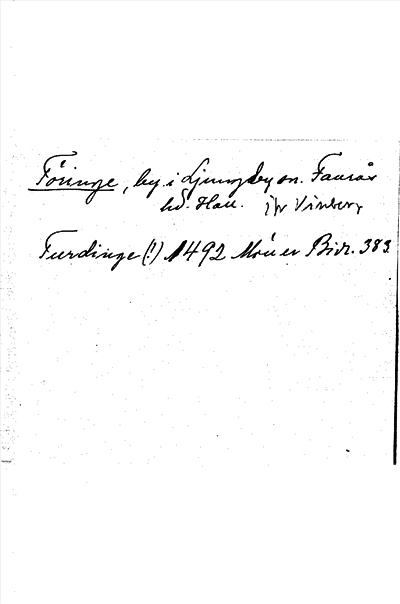 Föringe, by i Ljungby sn. Faurås
hd. Hall. jfr Vinberg
Furdinge (!) 1492 Bidr. 383.